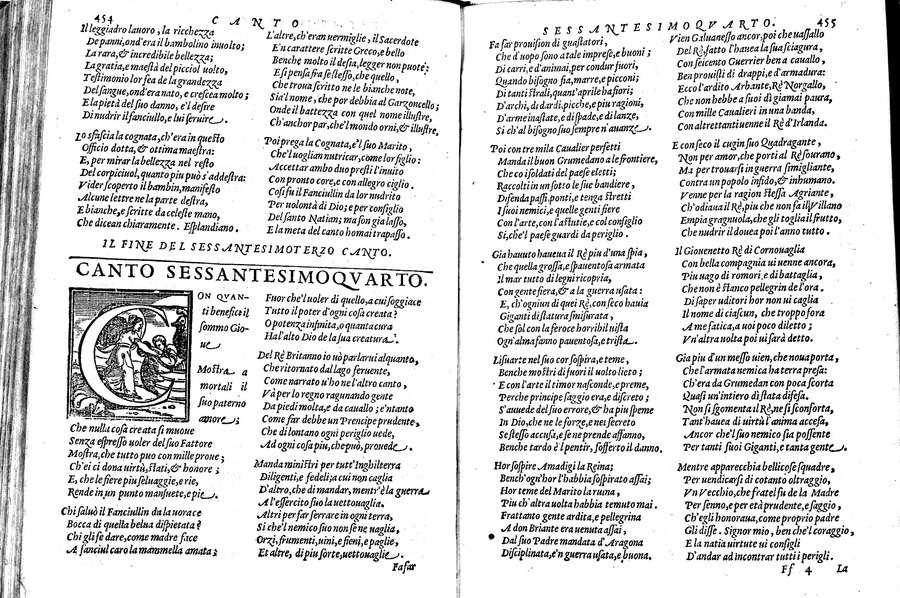 454 CANTO
Il leggiadro lauoro, la ricchezza
De panni, ond'era il bambolino inuolto;
La rara, & incredibile bellezza;
La gratia, e maestà del picciol uolto,
Testimonio lor fea de la grandezza
Del sangue, ond'era nato, e crescea molto;
E la pietà del suo danno, e'l desire
Di nudrir il fanciullo, e lui seruire.
Lo sfascia la cognata, ch'era in questo
Officio dotta, & ottima maestra:
E, per mirar la bellezza nel resto
Del corpicciuol, quanto piu può s'addestra:
Vider scoperto il bambin, manifesto
Alcune lettre ne la parte destra,
E bianche, e scritte da celeste mano,
Che dicean chiaramente. Esplandiano.
L'altre, ch'eran vermiglie, il Sacerdote
E'n carattere scritte Greco, e bello
Benche molto il desia, legger non puote:
E si pensa fra se stesso, che quello,
Che troua scritto ne le bianche note,
Sia'l nome, che por debbia al Garzoncello;
Onde il battezza con quel nome illustre,
Ch'anchor par, che'l mondo orni, & illustre.
Poi prega la Cognata, e'l suo Marito,
Che'l uoglian nutricar, come lor figlio:
Accettar ambo duo presti l'inuito
Con pronto core, e con allegro ciglio.
Cosi fu il Fanciullin da lor nudrito
Per uolontà di Dio; e per consiglio
Del santo Natian; ma son già lasso,
E la meta del canto homai trapasso.
IL FINE DEL SESSANTESIMOTERZO CANTO.
CANTO SESSANTESIMOQVARTO.
CON QVAN-
ti benefici il
sommo Gio-
ue
Mostra a
mortali il
suo paterno
amore;
Che nulla cosa creata si muoue
Senza espresso uoler del suo Fattore
Mostra, che tutto puo con mille proue;
Ch'ei ci dona uirtù, stati, & honore;
E, che le fiere piu seluaggie, e rie,
Rende in un punto mansuete, e pie.
Chi saluò il Fanciullin da la uorace
Bocca di quella belua dispietata?
Chi gli fe dare, come madre face
A fanciul caro la mammella amata;
Fuor che'l uoler di quello, a cui soggiace
Tutto il poter d'ogni cosa creata?
O potenza infinita, o quanta cura
Ha l'alto Dio de la sua creatura.
Del Rè Britanno io uò parlarui alquanto,
Che ritornato dal lago feruente,
Come narrato u'ho ne l'altro canto,
Và per lo regno ragunando gente
Da piedi molta, e da cauallo; e'ntanto
Come far debbe un Prencipe prudente,
Che di lontano ogni periglio uede,
Ad ogni cosa piu, che può, prouede.
Manda ministri per tutt'Inghilterra
Diligenti, e fedeli; a cui non caglia
D'altro, che di mandar, mentr'è la guerra
A l'essercito suo la uettouaglia.
Altri per far ferrare in ogni terra,
Si che'l nemico suo non se ne uaglia,
Orzi, frumenti, uini, e fieni, e paglie,
Et altre, di piu sorte, uettouaglie.
Fa far
SESSANTESIMOQVARTO. 455
Fa far prouision di guastatori,
Che d'uopo sono a tale imprese, e buoni;
Di carri, e d'animai, per condur fuori,
Quando bisogno fia, marre, e picconi;
Di tanti strali, quant'aprile ha fiori;
D'archi, di dardi, picche, e piu ragioni,
D'arme inastate, e di spade, e di lanze,
Si ch'al bisogno suo sempre n'auanze.
Poi con tre mila Caualier perfetti
Manda il buon Grumedano a le frontiere,
Che co i soldati del paese eletti;
Raccolti in un sotto le sue bandiere,
Difenda passi, ponti, e tenga stretti
I suoi nemici, e quelle genti fiere
Con l'arte, con l'astutie, e col consiglio
Si, che'l paese guardi da periglio.
Gia hauuto haueua il Rè piu d'una spia,
Che quella grossa, e spauentosa armata
Il mar tutto di legni ricopria,
Con gente fiera, & a la guerra usata:
E, ch'ogniun di quei Rè, con seco hauia
Giganti di statura smisurata,
Che sol con la feroce horribil uista
Ogn'alma fanno pauentosa, e trista.
Lisuarte nel suo cor sospira, e teme,
Benche mostri di fuori il uolto lieto;
E con l'arte il timor nasconde, e preme,
Perche principe saggio era, e discreto;
S'auuede del suo errore, & ha piu speme
In Dio, che ne le forze, e nei secreto
Se stesso accusa, e se ne prende affanno,
Benche tardo è'l pentir, sofferto il danno.
Hor sospire Amadigi la Reina;
Bench'ogn'hor l'habbia sospirato assai;
Hor teme del Marito la ruina,
Piu ch'altra uolta habbia temuto mai.
Frattanto gente ardita, e pellegrina
A don Briante era uenuta assai,
Dal suo Padre mandata d'Aragona
Disciplinata, e'n guerra usata, e buona.
Vien Galuanesso ancor, poi che uassallo
Del Rè fatto l'hauea la sua sciagura,
Con seicento Guerrier ben a cauallo,
Ben prouisti di drappi, e d'armadura:
Ecco l'ardito Arbante, Rè Norgallo,
Che non hebbe a suoi dì giamai paura,
Con mille Caualieri in una banda,
Con altrettanti uenne il Rè d'Irlanda.
E con seco il cugin suo Quadragante,
Non per amor, che porti al Rè sourano,
Ma per trouarsi in guerra simigliante,
Contra un popolo infido, & inhumano.
Venne per la ragion stessa Agriante,
Ch'odiaua il Rè, piu che non fa il Villano
Empia gragnuola, che gli toglia il frutto,
Che nudrir il douea poi l'anno tutto.
Il Giouenetto Rè di Cornouaglia
Con bella compagnia ui uenne ancora,
Piu uago di romori, e di battaglia,
Che non è stanco pellegrin de l'ora.
Di saper uditori hor non ui caglia
Il nome di ciascun, che troppo fora
A me fatica, a uoi poco diletto;
Vn'altra uolta poi ui sarà detto.
Gia piu d'un messo uien, che noua porta,
Che l'armata nemica ha terra presa:
Ch'era da Grumedan con poca scorta
Quasi un'intiero dì stata difesa.
Non si sgomenta il Rè, ne si sconforta,
Tant'hauea di uirtù l'anima accesa,
Ancor che'l suo nemico sia possente
Per tanti suoi Giganti, e tanta gente.
Mentre apparecchia bellicose squadre,
Per uendicarsi di cotanto oltraggio,
Vn Vecchio, che fratel fu de la Madre
Per senno, e per età prudente, e saggio,
Ch'egli honoraua, come proprio padre
Gli disse. Signor mio, ben che'l coraggio,
E la natia uirtute ui consigli
D'andar ad incontrar tutti i perigli.
Ff 4 La